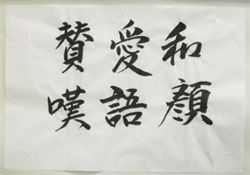 和顔
愛語
賛嘆